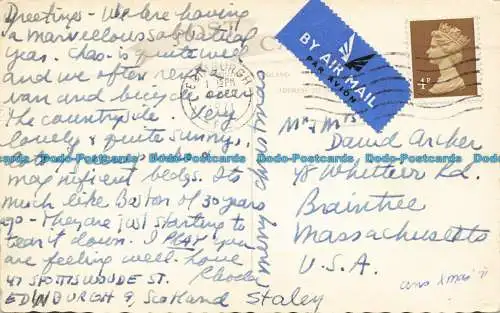 Greetings - We are having
a marvellous sabbatical
year. Chas. is quite well
and we often rent a
van and bicycle over
the countryside. Very
lovely & quite sunny,
magnificent bldgs. Its
much like Boston of 30 years
ago - They are just starting to
tear it down. I PRAY you
are feeling well. Love
47 SPOTTISWOODE ST.
EDINBURGH 9, Scotland Staley
merry christmas
BY AIR MAIL
PAR AVION
EDINBURGH
4D
Mr & Mrs
David Archer
Whittier Rd.
Braintree
Massachusetts
U.S.A.
ans xmas
Dodo-Postcards Dodo-Postcards Dodo-Postcards Dodo-Postcards